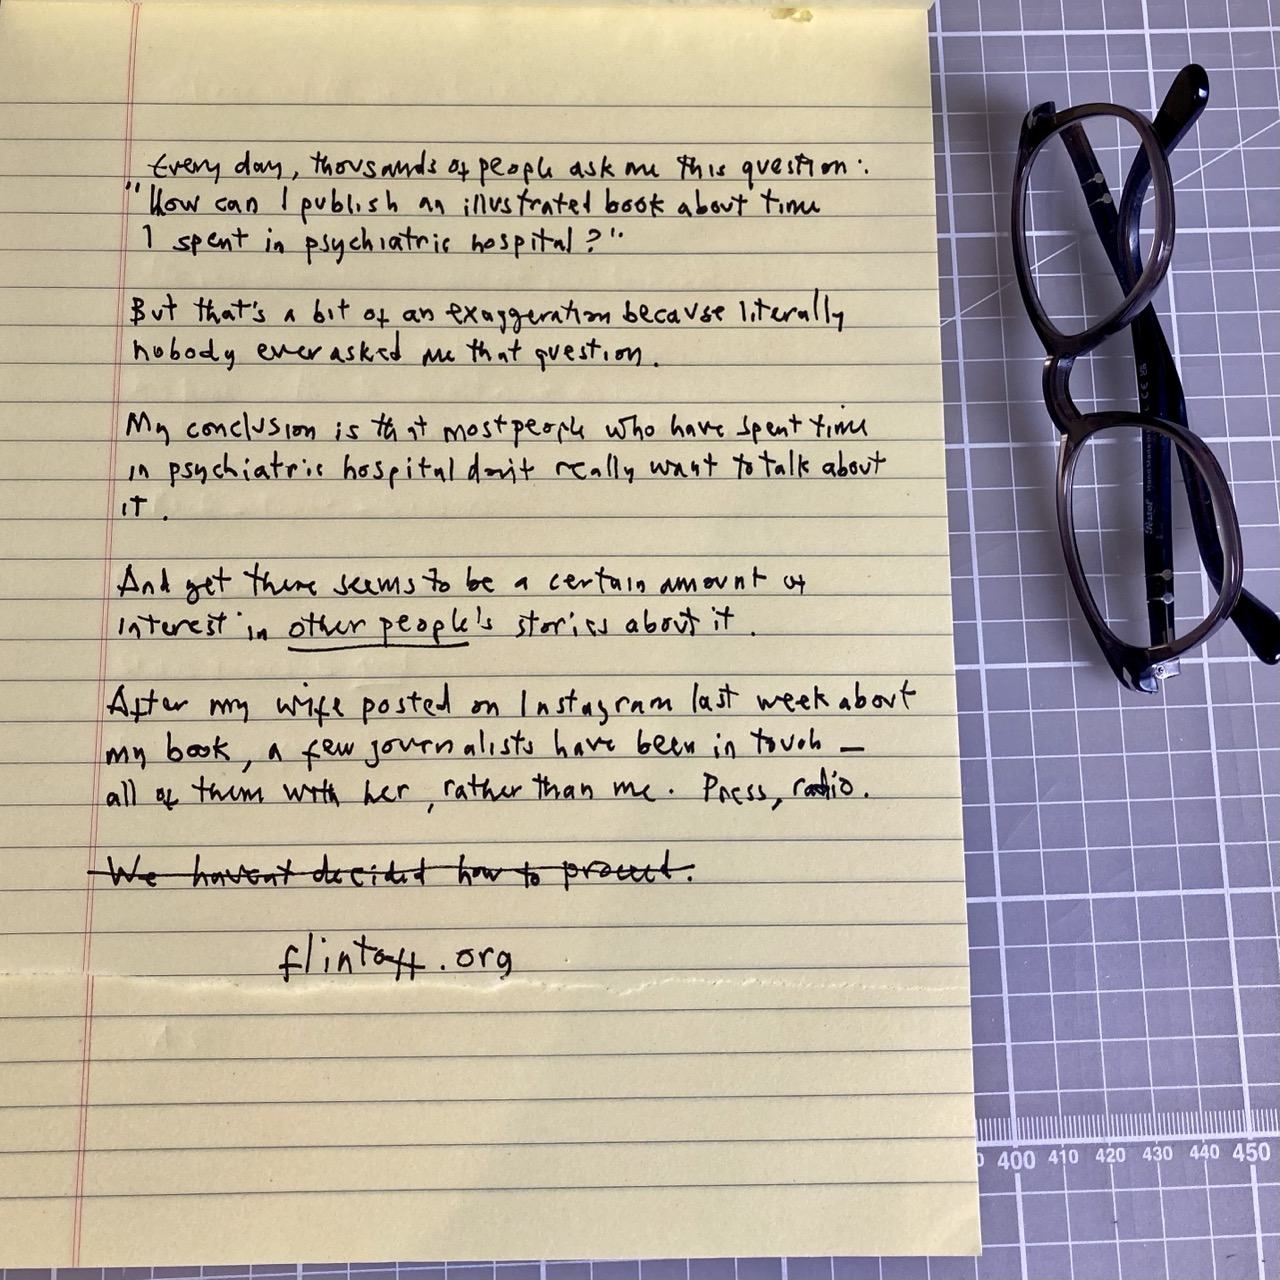 Every day, thousands of people ask me this question:
"How can I publish an illustrated book about time
I spent in psychiatric hospital?"
But that's a bit of an exaggeration because literally
nobody ever asked me that question.
My conclusion is that most people who have spent time
in psychiatric hospital don't really want to talk about
it.
And yet there seems to be a certain amount of
interest in other people's stories about it.
After my wife posted on Instagram last week about
my book, a few journalists have been in touch –
all of them with her, rather than me. Press, radio.
We haven't decided how to proceed.
flintoff.org
Persol
400 410 420 430 440 450